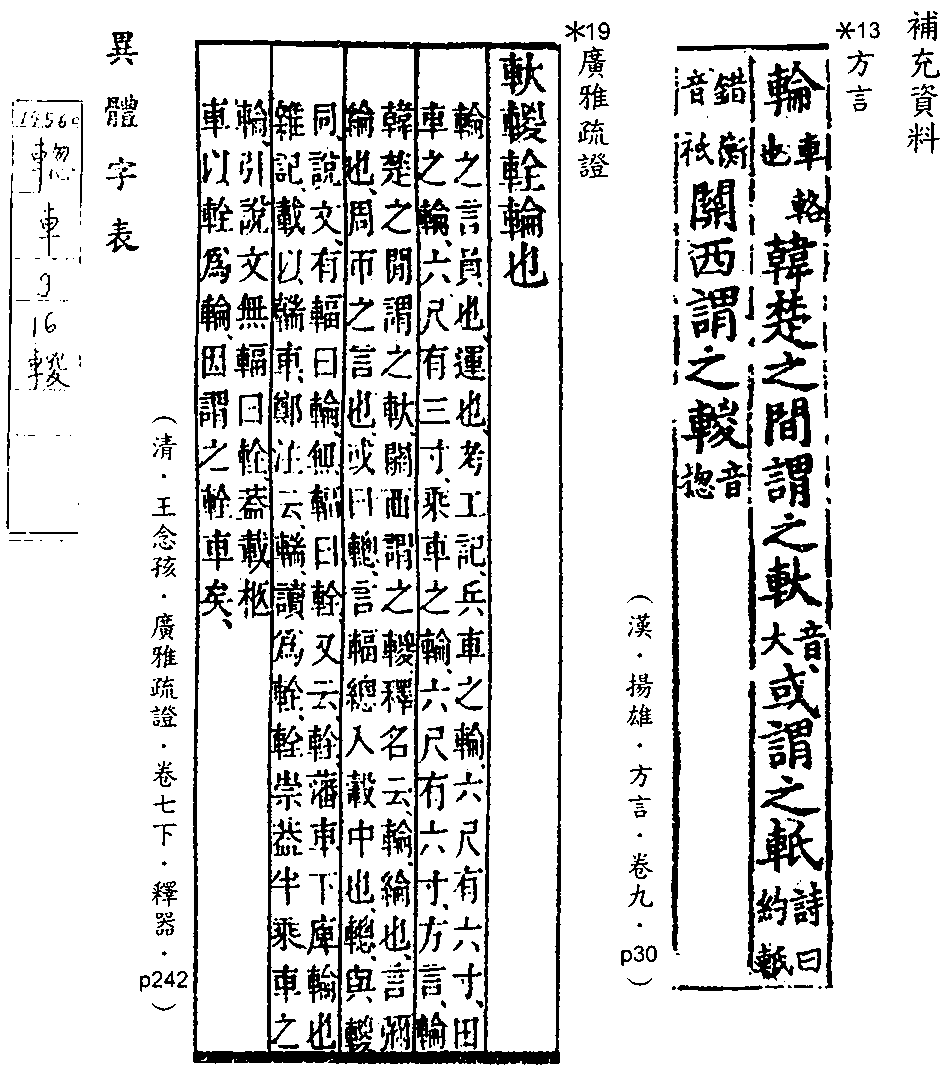 補充資料
*13方言
輪車輅也韓楚之間謂之軑音大、或謂之軝詩曰約軝
錯衡音祇關西謂之䡯音摠
(漢．揚雄．方言．卷九．p30)
*19廣雅疏證
軑䡯輇輪也
輪之言員也、運也、考工記、兵車之輪、六尺有六寸、田
車之輪、六尺有三寸、乘車之輪、六尺有六寸、方言、輪
韓楚之閒謂之軑、關西謂之䡯、釋名云、輪、綸也、言彌
綸也、周帀之言也、或曰、言輻總入轂中也、與䡯
同、說文、有輻曰輪、無輻曰輇、又云輇、藩車下庳輪也
雜記、載以輲車、鄭注云、輲讀爲輇、輇崇蓋半乘車之
輪、引說文無輻曰輇、蓋載柩
車以輇爲輪、因謂之輇車矣、
(清．王念孩．廣雅疏證．卷七下．釋器．p242)
異體字表
車
9
16
䡯